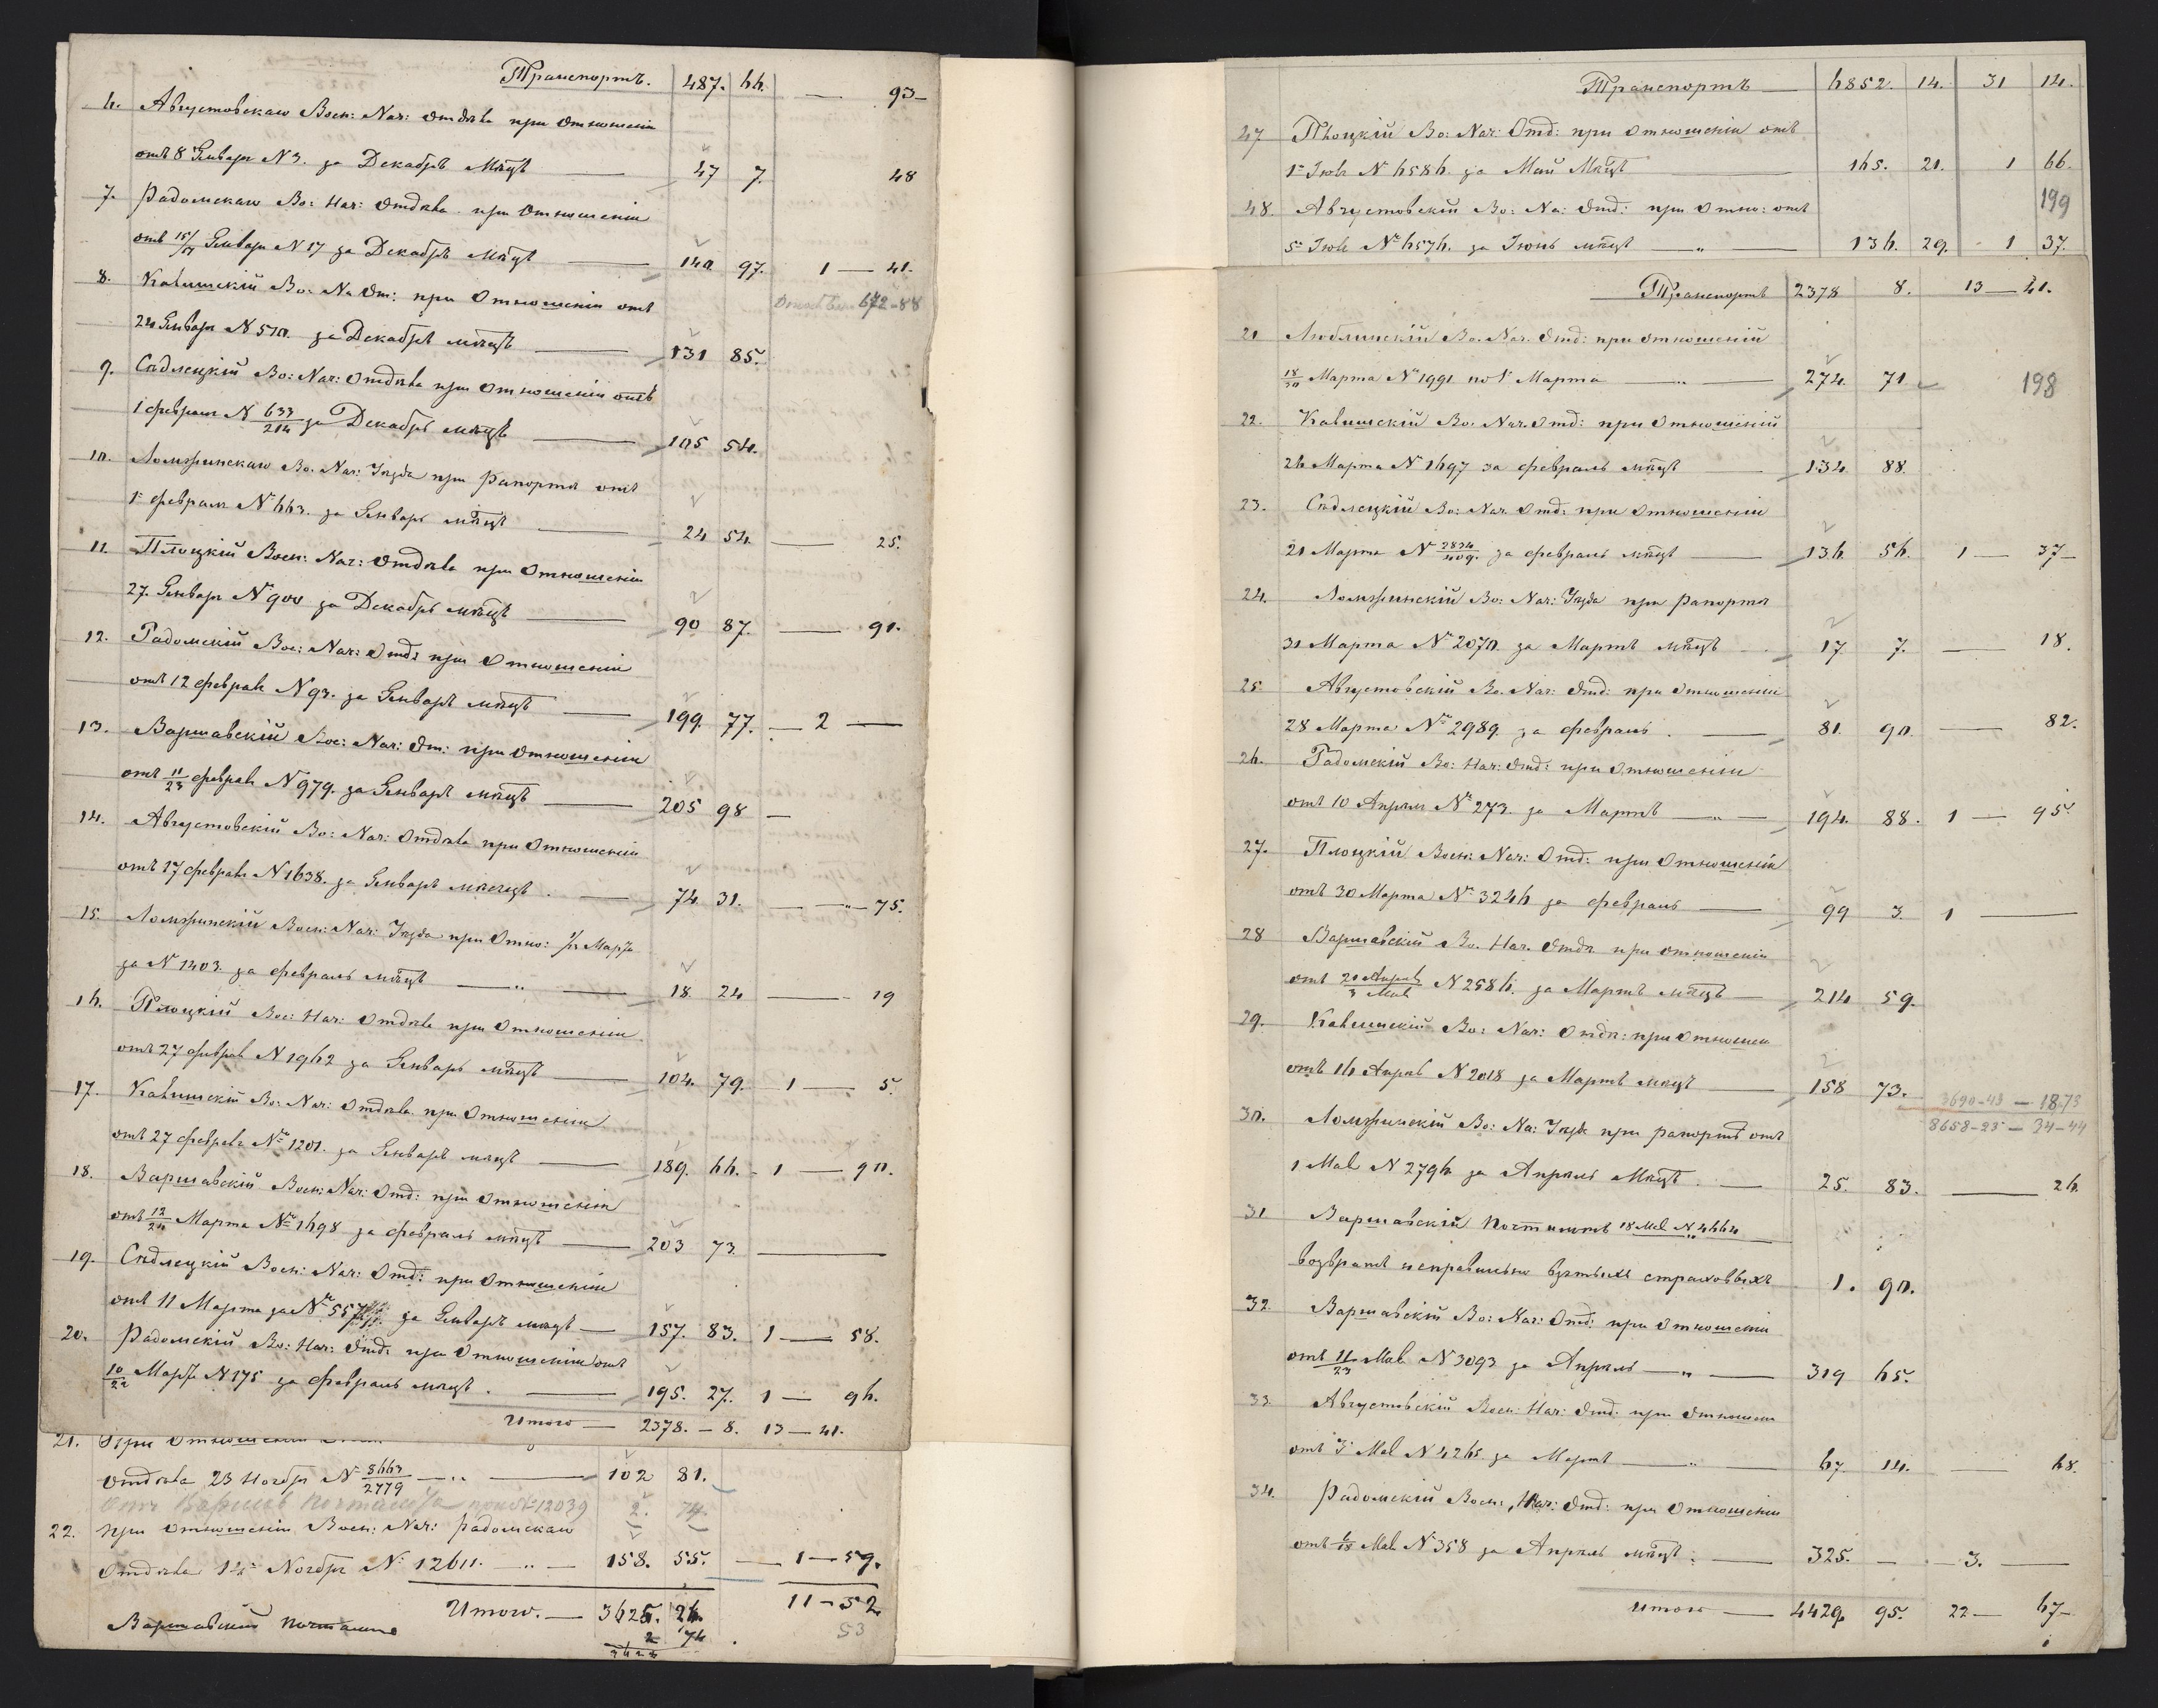 Транспортъ. 487. 66. — 93—
6. Августовскаго Воен: Нач: Отдѣла при Отношеніи
отъ 8 Генваря N 3. за Декабрь Мѣцъ — 47 7. 48
7. Радомскаго Во: Нач: Отдѣла при Отношеніи
отъ 15/27 Генваря N 17 за Декабрь Мѣцъ — 140. 97. 1 — 41.
672-88
8. Калишскій Во: На От: при Отношеніи отъ
24 Генваря N 510. за Декабрь мѣцъ — 131 85.
9. Сѣдлецкій Во: Нач: Отдѣла при Отношеніи отъ
1 февраля N 633/214 за Декабрь мѣцъ — 105 54.
10. Ломжинскаго Во. Нач: Уѣзда при рапортѣ отъ
1 февраля N 663. за Генварь мѣцъ — 24 54. — 25.
11. Плоцкій Воен: Нач: Отдѣла при Отношеніи
27. Генваря N 900 за Декабрь мѣцъ — 90 87. — 91.
12. Радомскій Вое: Нач: Отдѣ при Отношеніи
отъ 12 февраля N 93. за Генварь мѣцъ — 199. 77. — 2 —
13. Варшавскій Вое: Нач: От: при Отношеніи
отъ 11/23 февраля N 979. за Генварь мѣцъ — 205 98 —
14. Августовскій Во: Нач: Отдѣла при Отношеніи
отъ 17 февраля N 1638. за Генварь мѣсяцъ. — 74. 31. — „ — 75.
15. Ломжинскій Воен: Нач: Уѣзда при Отно: Марта
за N 1403. за февраль мѣцъ — „ — 18. 24 — 19
16. Плоцкій Вое: Нач: Отдѣла при Отношеніи
отъ 27 февраля N 1962 за Генварь мѣцъ — 104. 79. 1 — 5.
17. Калишскій Во: Нач: Отдѣла при Отношеніи
отъ 27 февраля N 1201. за Генварь мѣцъ — 189. 66. - 1 — 90.
18. Варшавскій Воен: Нач: Отд: при Отношеніи
отъ 12/24 Марта N 1698 за февраль мѣцъ — 203 73. —
19. Сѣдлецкій Воен: Нач: Отд: при Отношеніи
отъ 11 Марта за N 557 за Генварь мѣцъ — 157. 83. 1 — 58.
20. Радомскій Во: Нач: Отд: при Отношеніи отъ
10/22 Марта N 175 за февраль мѣцъ. — 195. 27. 1 — 96.
Итого — 2378. — 8. 13 — 41.
21. При Отношеніи
Отдѣла 23 Ноября N 3663/2779 — „ — 102 81.
Отъ Варшав Почтамта 12039 2. 74.
22. при Отношеніи Воен: Нач: Радомскаго
Отдѣла 14 Ноября N 12611. — „ — 158. 55. — 1 — 59.
Итого. — 3625. 24. 11 — 52
Варшавскій Почтамтъ 2 74. 53
Транспортъ — 6852. 14. 31 14.
47 Плоцкій Во: Нач: Отд: при Отношеніи отъ
1 Іюля N 6586. за Май Мѣцъ — 165. 21. 1 66.
199
48. Августовскій Во: На: Отд: при Отно: отъ
5 Іюля N 6576. за Іюнь мѣцъ — „ — 136. 29. 1 37.
Транспортъ 2378 8. 13 — 41.
21 Люблинскій Во. Нач. Отд: при Отношеній
18/30 Марта N 1991 по 1 Марта — „ — 274. 71. 198
22. Калишскій Во. Нач. Отд: при Отношеній
26 Марта N 1697 за февраль мѣцъ — 134. 88.
23. Сѣдлецкій Во: Нач. Отд: при Отношеніи
21 Марта N 2834/409. за февраль мѣцъ — 136. 56. 1 — 37—
24. Ломжинскій Во: Нач: Уѣзда при рапортѣ
31 Марта N 2070. за Мартъ мѣцъ — 17. 7. — 18.
25. Августовскій Во. Нач: Отд: при Отношеніи
28 Марта N 2989. за февраль. — 81. 90. — 82.
26. Радомскій Во: Нач: Отд: при Отношеніи
отъ 10 Апрѣля N 273. за Мартъ — „ — 194. 88. 1 — 95.
27. Плоцкій Воен: Нач: Отд: при Отношеніи
отъ 30 Марта N 3246 за февраль — 99 3. 1 —
28 Варшавскій Во. Нач. Отдѣ при отношеніи
отъ 21 Апрѣля/3 Маія N 2586. за Мартъ мѣцъ — 214 59.
29. Калишскій Во: Нач: Отдѣ: при Отношен
отъ 16 Апрѣля N 2018 за Мартъ мѣцъ — 158 73.
3690-49 — 18.73
8658-25 — 34-44
30. Ломжинскій Во: На: Уѣзда при рапортѣ отъ
1 Маія N 2796 за Апрѣль Мѣцъ. — 25. 83. — 26.
31. Варшавскій Почтамтъ 18 Маія N 4664
возвратъ неправильно взятыхъ страховыхъ 1. 90.
32. Варшавскій Во: Нач: Отд: при Отношеніи
отъ 11/23 Маія N 3093 за Апрѣль — „ — 319 65.
33. Августовскій Воен: Нач: Отд: при Отношен
отъ 3 Маія N 4265 за Мартъ — „ — 67 14. — 68.
34. Радомскій Воен: Нач: Отд: при Отношеніи
отъ 6/18 Маія N 358 за Апрѣль мѣцъ: — 325. — - 3. —
Итого — 4429. 95. 22 — 67—